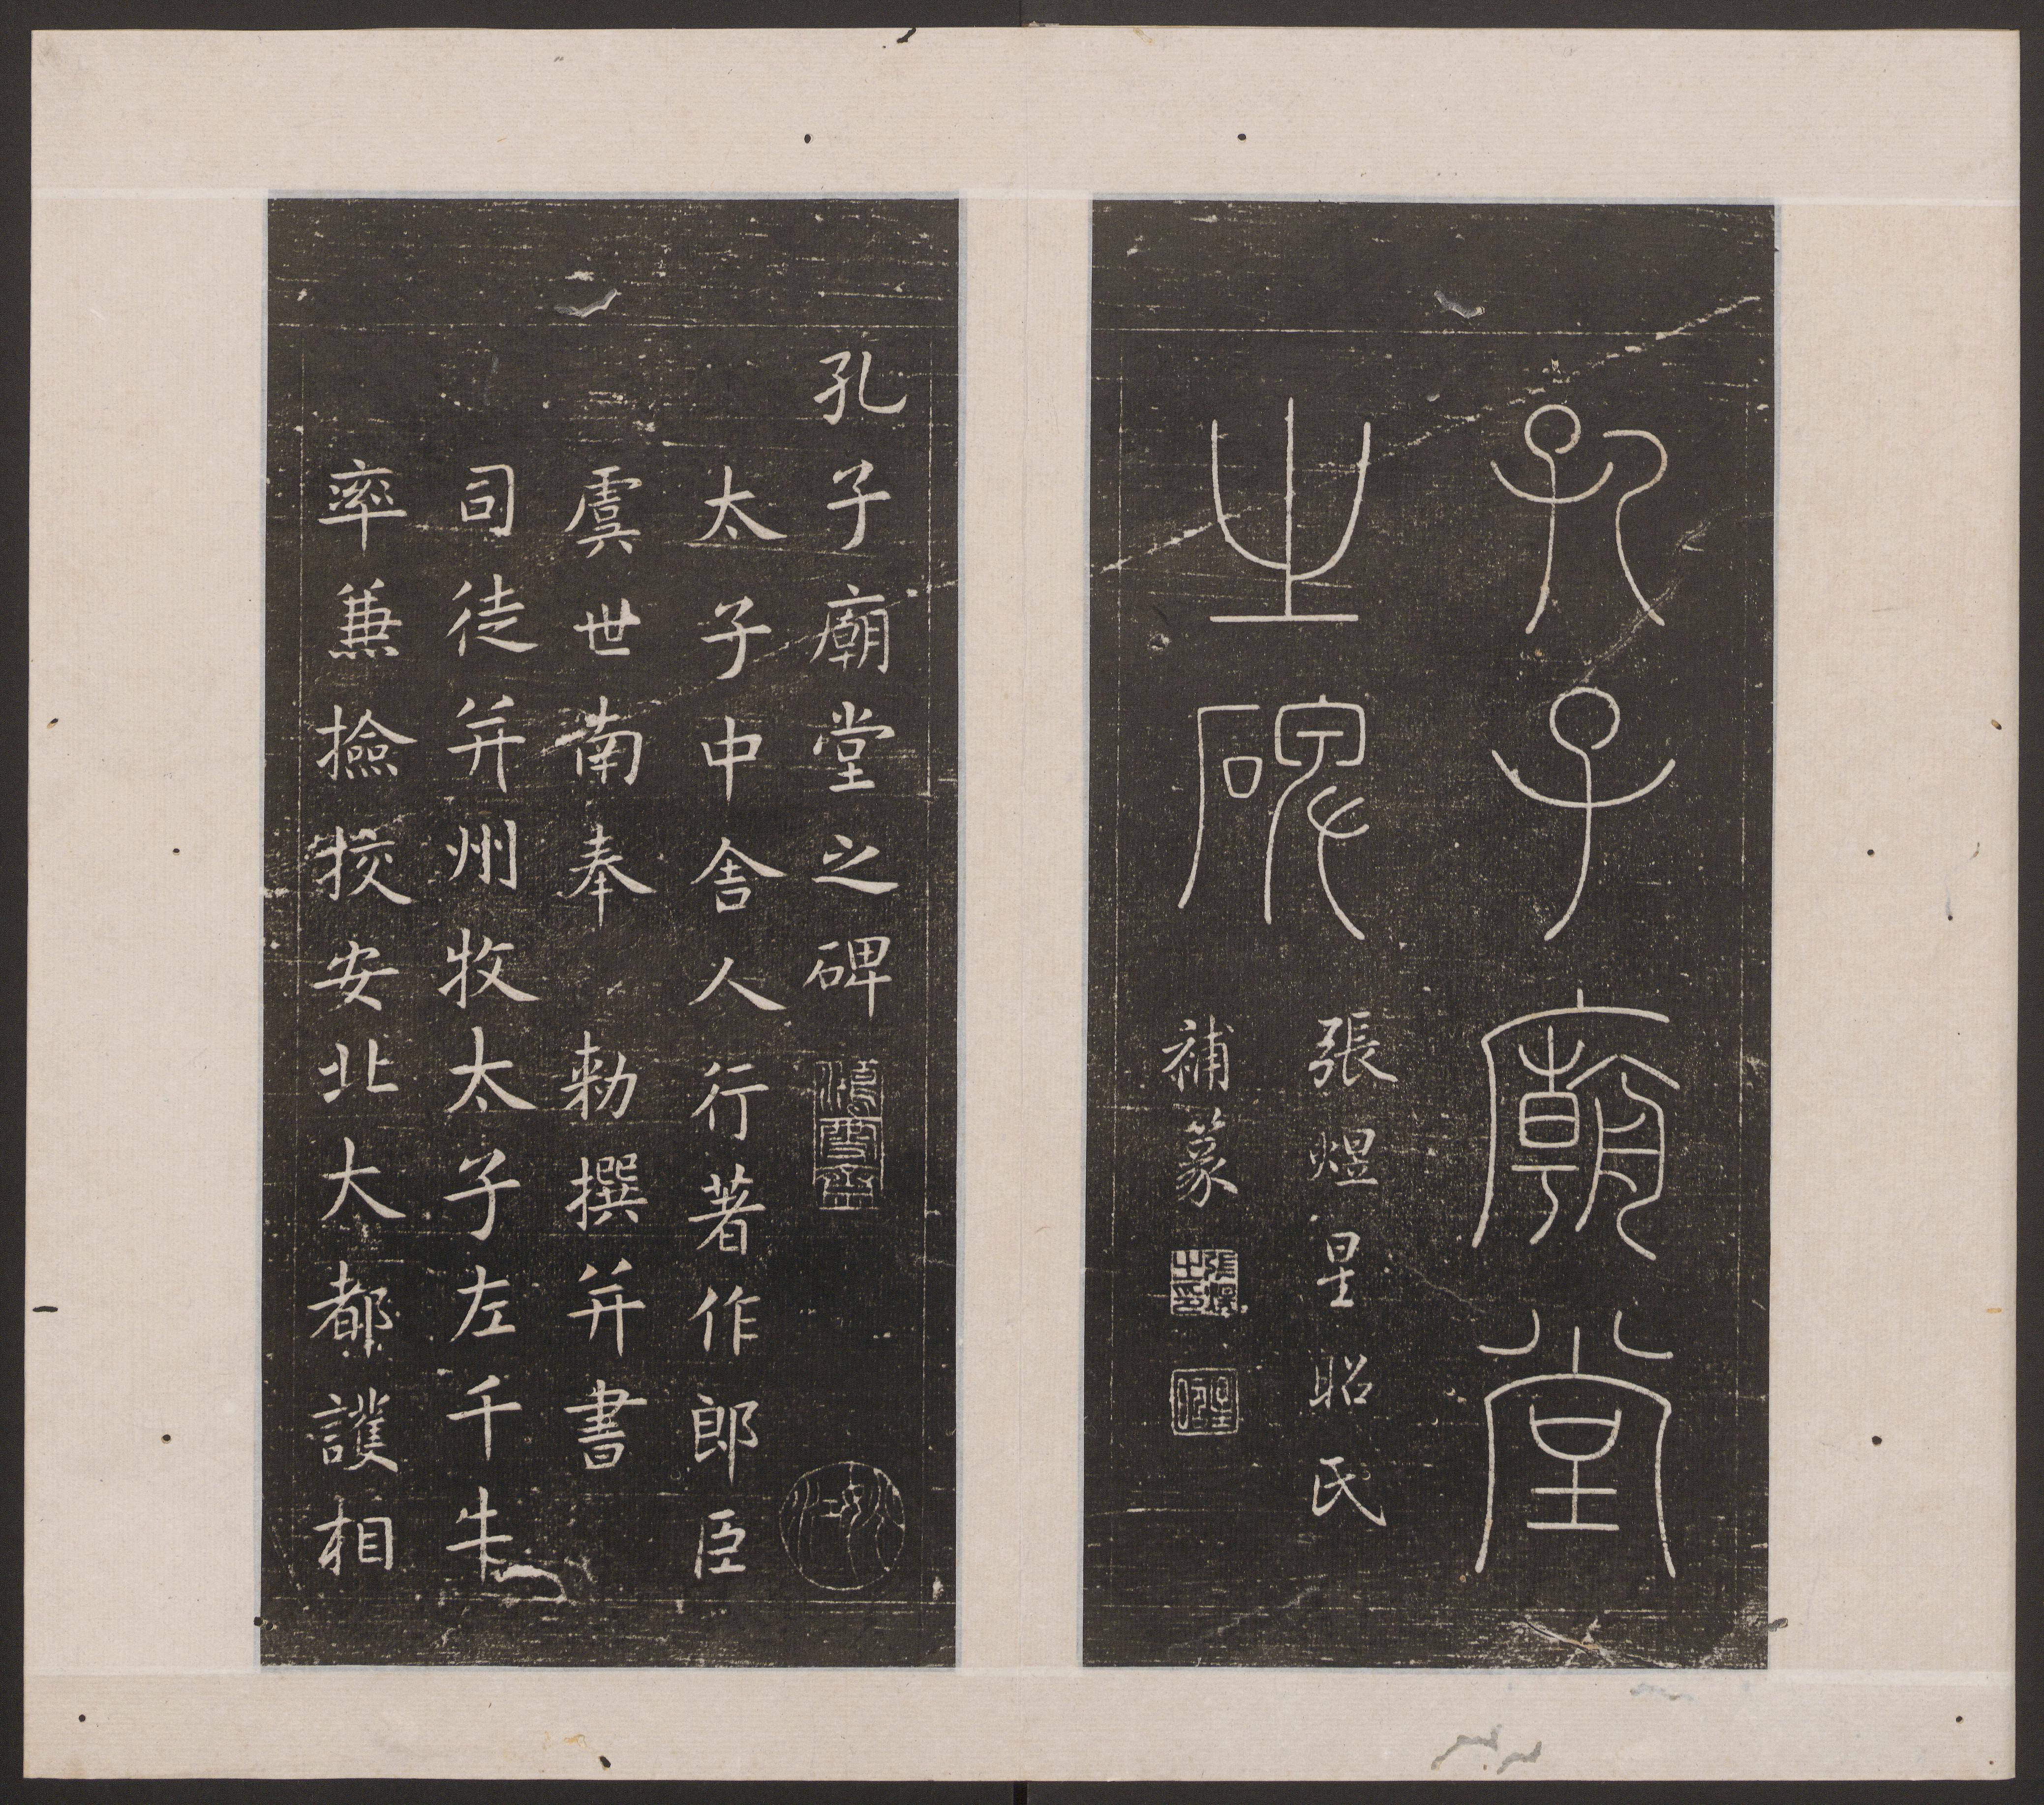 孔子廟堂
之碑
張煜星昭氏
補篆
孔子廟堂之碑
太子中舍人行著作郎臣
虞世南奉　勑撰并書
司徒并州牧太子左千牛
率兼撿挍安北大都護相